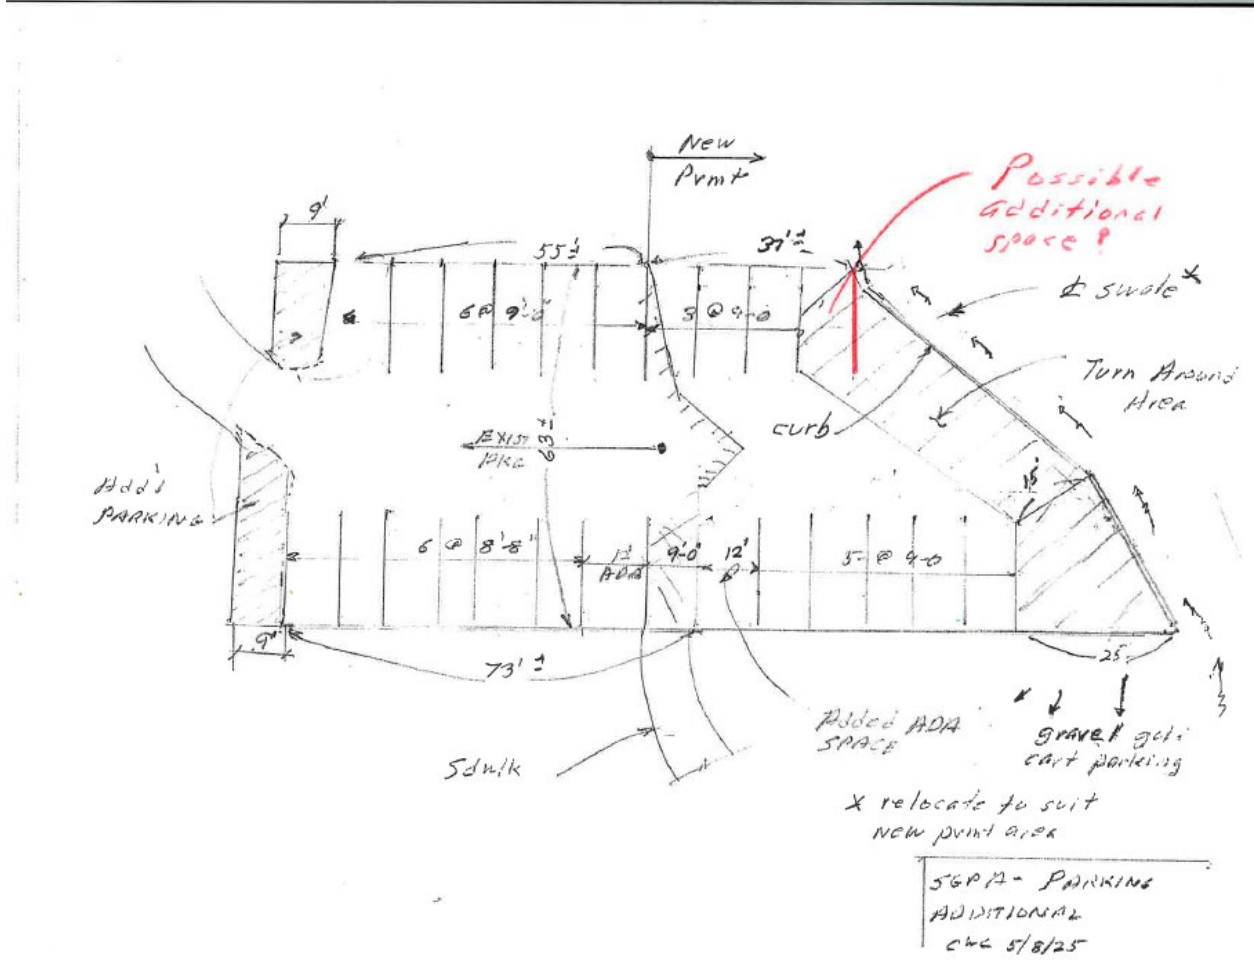 New
Pvmt
Possible
additional
space ?
9'
55'±
37'±
₵ swale *
6 @ 9'-0"
3 @ 9-0
Turn Around
Area
curb
EXIST
PKG
63'±
15'
Add'l
PARKING
6 @ 8'-8"
12'
ADA
9'-0"
12'
5 @ 9-0
9'
73'±
25
Added ADA
SPACE
gravel golf
cart parking
Sdwlk
X relocate to suit
new pvmt area
SGPA - PARKING
ADDITIONAL
5/8/25